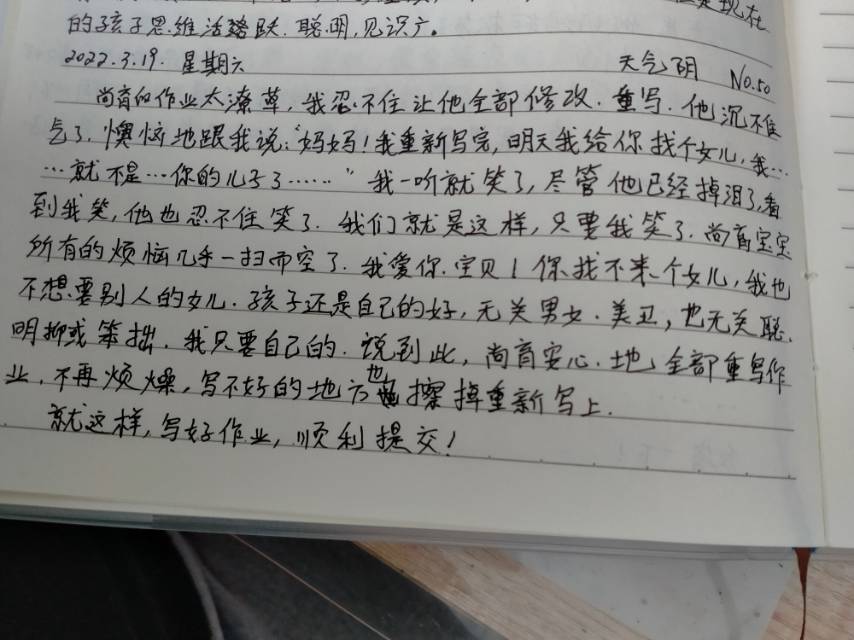 是现在
的孩子思维活跃、聪明,见识广。
2022.3.19. 星期六 天气阴 No.50
尚育的作业太潦草,我忍不住让他全部修改.重写.他沉不住
气了.懊恼地跟我说:“妈妈!我重新写完,明天我给你找个女儿,我…
…就不是…你的儿子了……”我一听就笑了,尽管他已经掉泪了,看
到我笑,他也忍不住笑了.我们就是这样,只要我笑了.尚育宝宝
所有的烦恼几乎一扫而空了.我爱你.宝贝!你找不来个女儿,我也
不想要别人的女儿.孩子还是自己的好,无关男女.美丑,也无关聪
明抑或笨拙.我只要自己的.说到此,尚育安心.地全部重写作
业.不再烦燥,写不好的地方也擦掉重新写上.
就这样,写好作业,顺利提交!